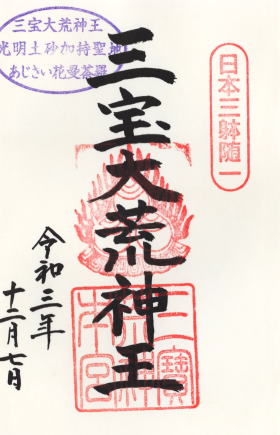 日本三躰随一
三宝大荒神王
三宝大荒神王
光明土砂加持聖地
あじさい花曼荼羅
令和三年
十二月七日
三寶
荒神
本宮